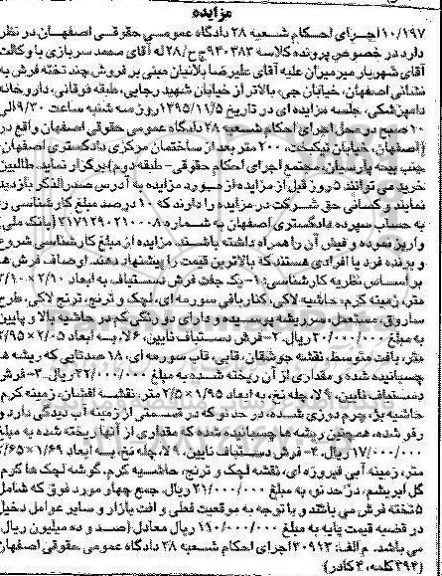 مزایده
۱۰/۱۹۷ اجرای احکام شعبه ۲۸ دادگاه عمومی حقوقی اصفهان در نظر
دارد در خصوص پرونده کلاسه ۹۴۰۴۸۳ ج ح/۲۸ له آقای محمد سربازی با وکالت
آقای شهریار میرمیران علیه آقای علیرضا بلانیان مبنی بر فروش چند تخته فرش به
نشانی اصفهان، خیابان جی، بالاتر از خیابان شهید رجایی، طبقه فوقانی، داروخانه
دامپزشکی، جلسه مزایده ای در تاریخ ۱۳۹۵/۱۱/۵ روز سه شنبه ساعت ۹/۳۰ الی
۱۰ صبح در محل اجرای احکام شعبه ۲۸ دادگاه عمومی حقوقی اصفهان واقع در
(اصفهان، خیابان نیکبخت، ۲۰۰ متر بعد از ساختمان مرکزی دادگستری اصفهان
جنب بیمه پارسیان، مجتمع اجرای احکام حقوقی- طبقه دوم) برگزار نماید. طالبین
خرید می توانند ۵ روز قبل از مزایده از مورد مزایده به آدرس صدرالذکر بازدید
نمایند و کسانی حق شرکت در مزایده را دارند که ۱۰ درصد مبلغ کارشناسی را
به حساب سپرده دادگستری اصفهان به شماره ۲۱۷۱۲۹۰۲۱۰۰۰۸ (بانک ملی)
واریز نموده و فیش آن را همراه داشته باشند. مزایده از مبلغ کارشناسی شروع
و برنده فرد یا افرادی هستند که بالاترین قیمت را پیشنهاد دهند. اوصاف فرش ها
بر اساس نظریه کارشناسی: ۱- یک جفت فرش دستباف به ابعاد ۲/۱۰×۳/۱۰
متر، زمینه کرم، حاشیه لاکی، کنار بافی سورمه ای، لچک و ترنج، ترنج لاکی، طرح
ساروق، مستعمل، سر ریشه پوسیده و دارای دو رنگی کم در حاشیه بالا و پایین
به مبلغ ۳۰/۰۰۰/۰۰۰ ریال. ۲- فرش دستباف نایین، ۶ لا، به ابعاد ۲/۰۵×۲/۹۵
متر، بافت متوسط، نقشه جوشقان، قابی، قاب سورمه ای، ۱۸ حدتایی که ریشه ها
چسبانیده شده و مقداری از آن ریخته شده به مبلغ ۴۲/۰۰۰/۰۰۰ ریال. ۳- فرش
دستباف نایین، ۹ لا، چله نخ، به ابعاد ۱/۹۵×۲/۵ متر، نقشه افشان، زمینه کرم،
حاشیه بژ، چرم دوزی شده، در حد نو که در قسمتی از زمینه آب دیدگی دارد و
رفو شده، همچنین ریشه ها چسبانیده شده که مقداری از آنها ریخته شده به مبلغ
۱۷/۰۰۰/۰۰۰ ریال. ۴- فرش دستباف نایین، ۹ لا، چله نخ، به ابعاد ۱/۶۹×۲/۶۵
متر، زمینه آبی فیروزه ای، نقشه لچک و ترنج، حاشیه کرم، گوشه لچک ها کرم
گل ابریشم، در حد نو، به مبلغ ۲۱/۰۰۰/۰۰۰ ریال. جمع چهار مورد فوق که شامل
۵ تخته فرش می باشند و با توجه به موقعیت فعلی و افت بازار و سایر عوامل دخیل
در قضیه قیمت پایه به مبلغ ۱۱۰/۰۰۰/۰۰۰ ریال معادل (صد و ده میلیون ریال)
می باشد. م الف: ۳۰۹۱۳ اجرای احکام شعبه ۲۸ دادگاه عمومی حقوقی اصفهان
(۳۹۴ کلمه، ۴ کادر)